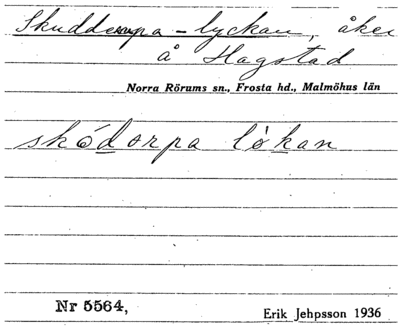 Skuddarpa-lyckan, åker
å Hagstad
Norra Rörums sn., Frosta hd., Malmöhus län
skódorpa lökan
Nr 5564,
Erik Jehpsson 1936